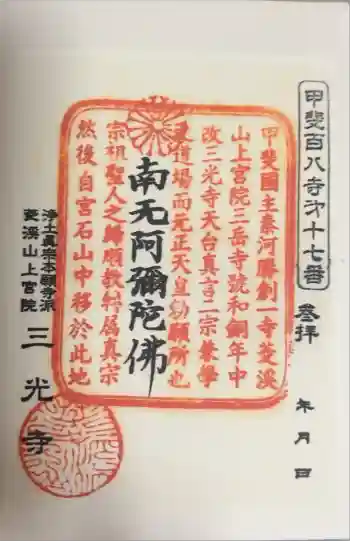 甲斐百八寺第十七番
参拝
年月日
甲斐國主秦河勝創一寺菱渓
山上宮院三岳寺號和銅年中
改三光寺天台真言二宗兼學
道場而元正天皇勅願所也
南无阿彌陀佛
宗祖聖人之歸願教特属真宗
然後自宮石山中移於此地
浄土真宗本願寺派
菱渓山上宮院
三光寺